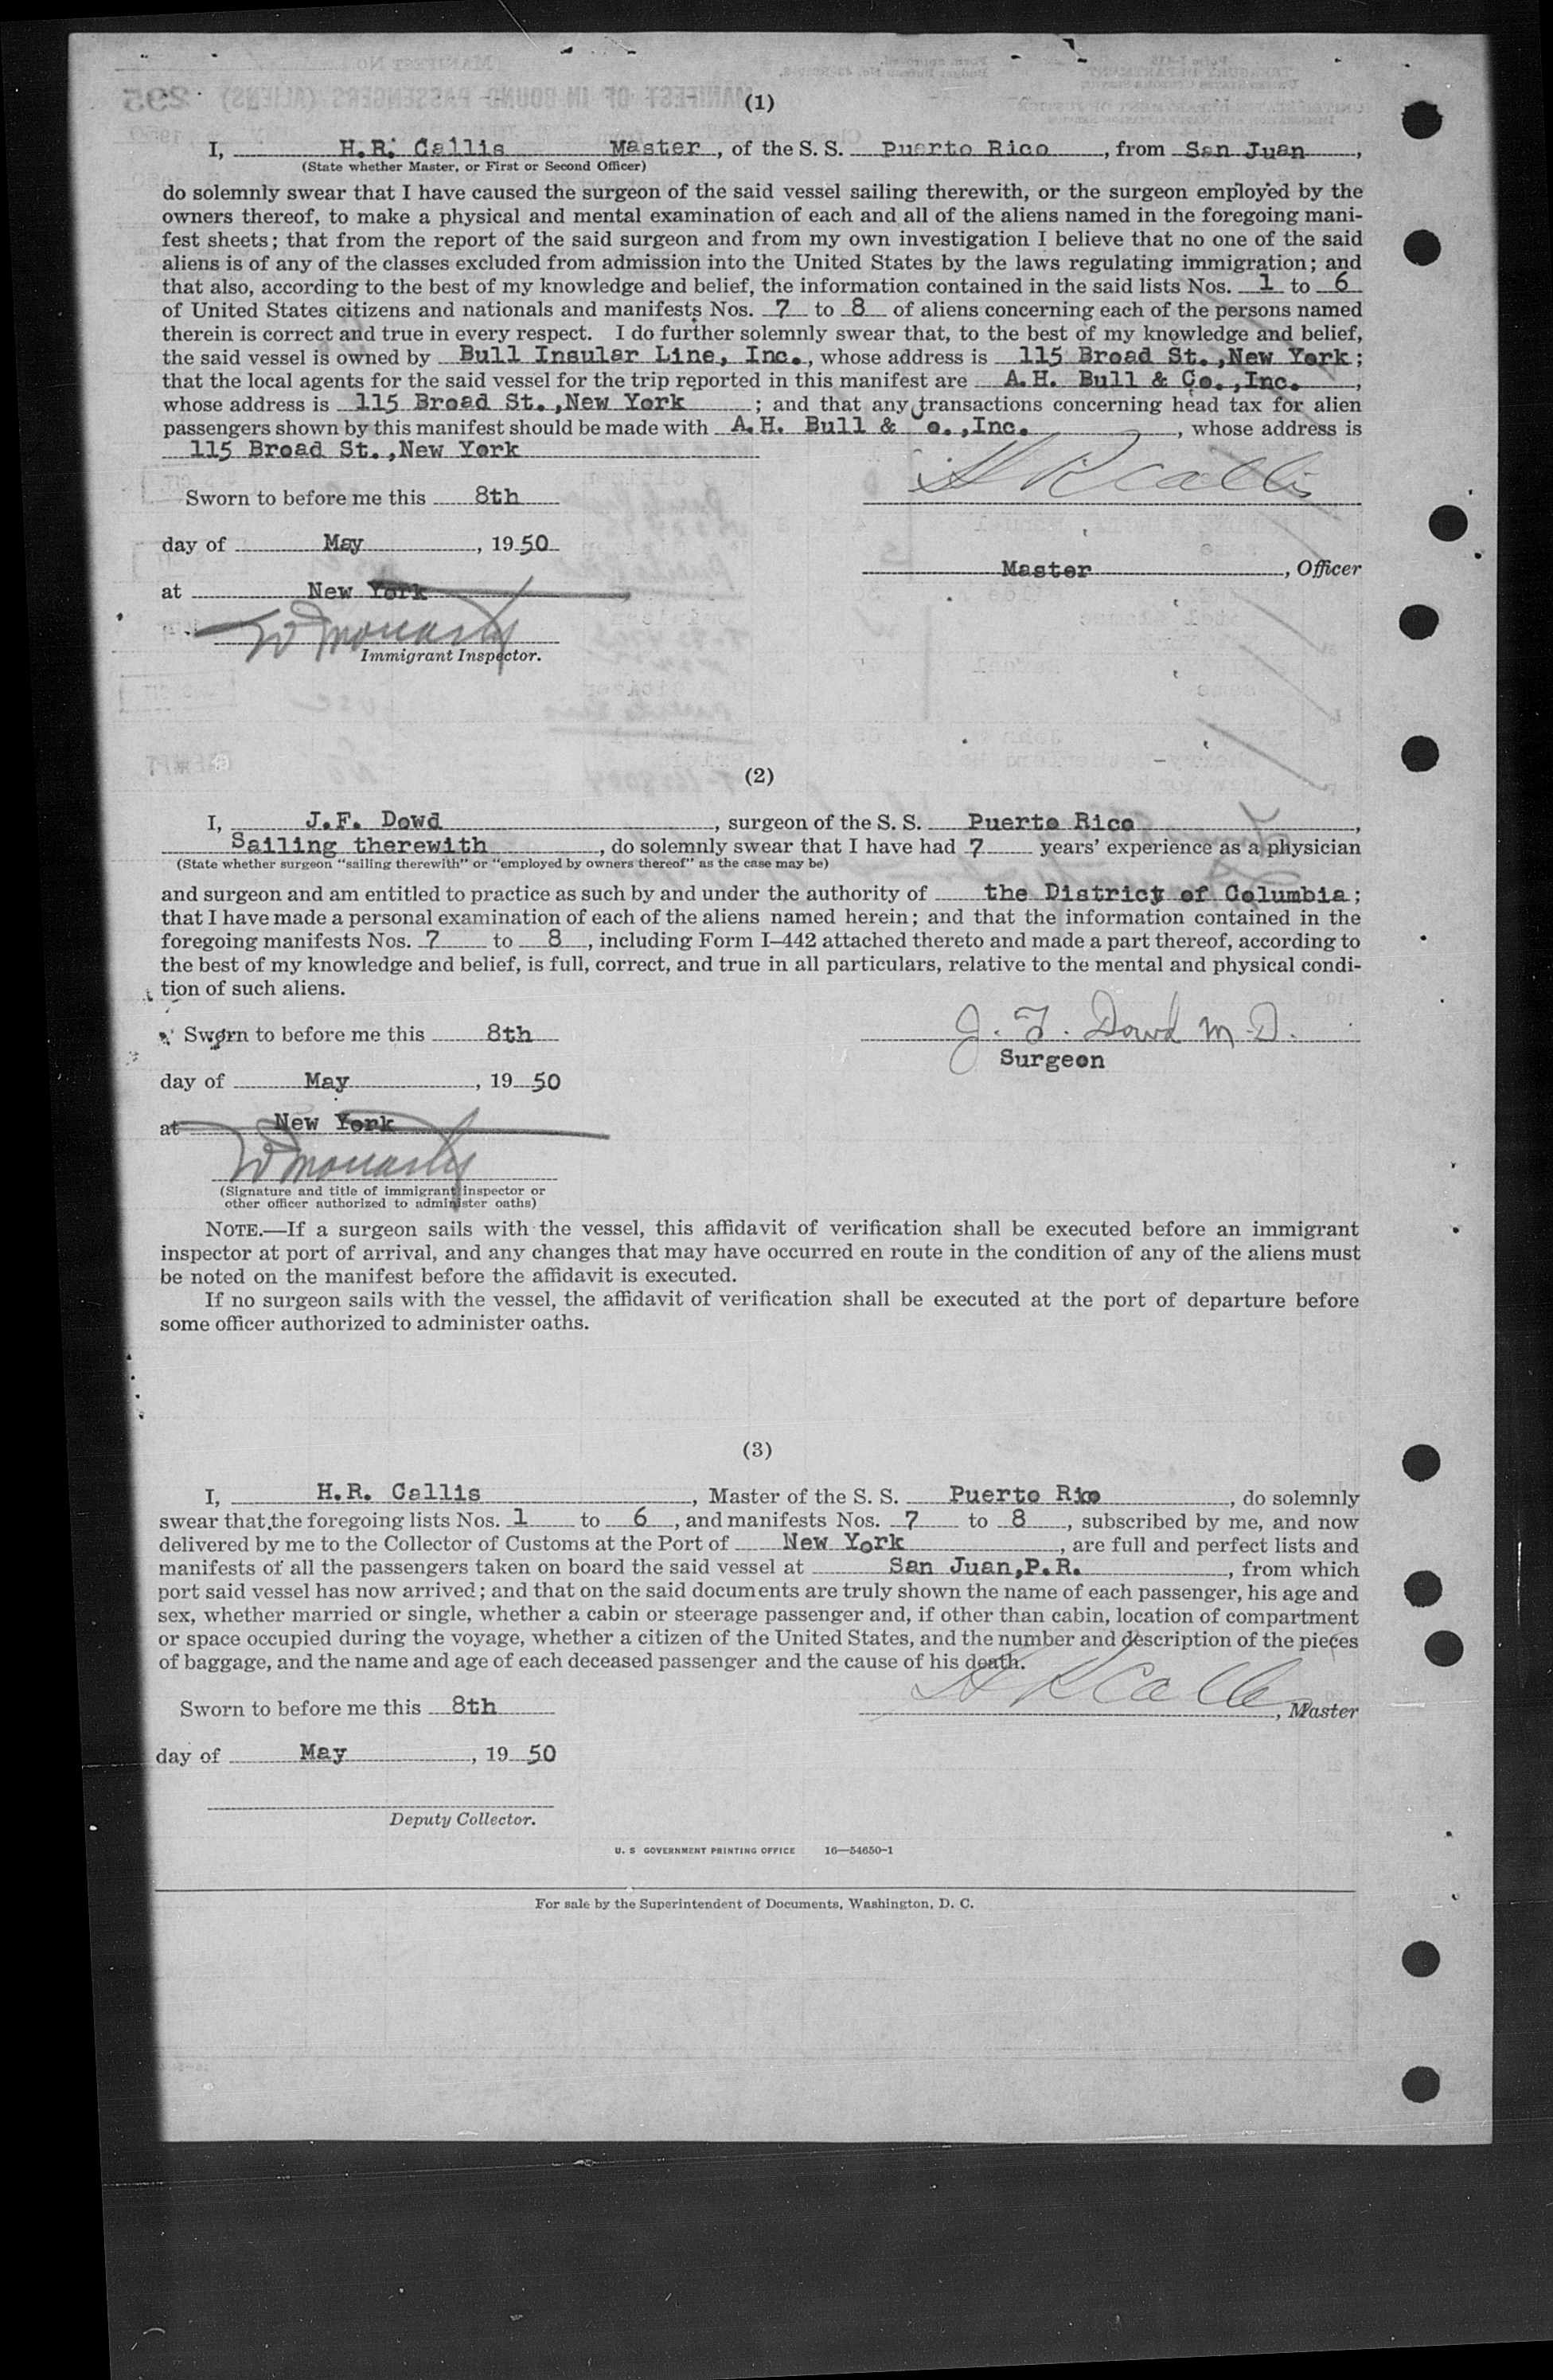 (1)
I, H.R. Callis Master, of the S. S. Puerto Rico, from San Juan,
(State whether Master, or First or Second Officer)
do solemnly swear that I have caused the surgeon of the said vessel sailing therewith, or the surgeon employed by the
owners thereof, to make a physical and mental examination of each and all of the aliens named in the foregoing mani-
fest sheets; that from the report of the said surgeon and from my own investigation I believe that no one of the said
aliens is of any of the classes excluded from admission into the United States by the laws regulating immigration; and
that also, according to the best of my knowledge and belief, the information contained in the said lists Nos. 1 to 6
of United States citizens and nationals and manifests Nos. 7 to 8 of aliens concerning each of the persons named
therein is correct and true in every respect. I do further solemnly swear that, to the best of my knowledge and belief,
the said vessel is owned by Bull Insular Line, Inc., whose address is 115 Broad St.,New York;
that the local agents for the said vessel for the trip reported in this manifest are A.H. Bull & Co.,Inc.,
whose address is 115 Broad St.,New York; and that any transactions concerning head tax for alien
passengers shown by this manifest should be made with A.H. Bull & Co.,Inc., whose address is
115 Broad St.,New York
H R Callis
Sworn to before me this 8th
day of May, 1950
Master, Officer
at New York
Immigrant Inspector.
(2)
I, J.F. Dowd, surgeon of the S. S. Puerto Rico,
Sailing therewith, do solemnly swear that I have had 7 years' experience as a physician
(State whether surgeon "sailing therewith" or "employed by owners thereof" as the case may be)
and surgeon and am entitled to practice as such by and under the authority of the District of Columbia;
that I have made a personal examination of each of the aliens named herein; and that the information contained in the
foregoing manifests Nos. 7 to 8, including Form I–442 attached thereto and made a part thereof, according to
the best of my knowledge and belief, is full, correct, and true in all particulars, relative to the mental and physical condi-
tion of such aliens.
Sworn to before me this 8th
J. F. Dowd M.D.
Surgeon
day of May, 1950
at New York
(Signature and title of immigrant inspector or
other officer authorized to administer oaths)
NOTE.—If a surgeon sails with the vessel, this affidavit of verification shall be executed before an immigrant
inspector at port of arrival, and any changes that may have occurred en route in the condition of any of the aliens must
be noted on the manifest before the affidavit is executed.
If no surgeon sails with the vessel, the affidavit of verification shall be executed at the port of departure before
some officer authorized to administer oaths.
(3)
I, H.R. Callis, Master of the S. S. Puerto Rico, do solemnly
swear that the foregoing lists Nos. 1 to 6, and manifests Nos. 7 to 8, subscribed by me, and now
delivered by me to the Collector of Customs at the Port of New York, are full and perfect lists and
manifests of all the passengers taken on board the said vessel at San Juan,P.R., from which
port said vessel has now arrived; and that on the said documents are truly shown the name of each passenger, his age and
sex, whether married or single, whether a cabin or steerage passenger and, if other than cabin, location of compartment
or space occupied during the voyage, whether a citizen of the United States, and the number and description of the pieces
of baggage, and the name and age of each deceased passenger and the cause of his death.
H R Callis
Sworn to before me this 8th
, Master
day of May, 1950
Deputy Collector.
U. S GOVERNMENT PRINTING OFFICE 16—54650-1
For sale by the Superintendent of Documents, Washington, D. C.